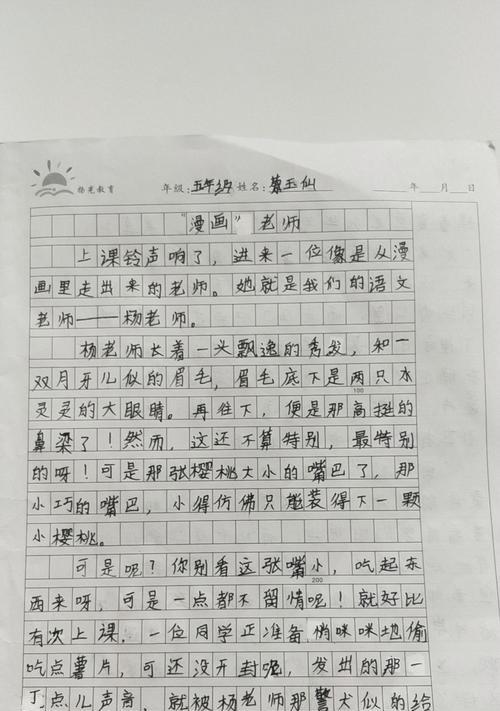 扬老教育 年级:五年级 姓名:蔡玉仙 年 月 日
“漫画”老师
上课铃声响了，进来一位像是从漫
画里走出来的老师。她就是我们的语文
老师——杨老师。
杨老师长着一头飘逸的秀发，和一
双月牙儿似的眉毛，眉毛底下是两只水
灵灵的大眼睛。再往下，便是那高挺的
100
鼻梁了！然而，这还不算特别，最特别
的呀！可是那张樱桃大小的嘴巴了，那
小巧的嘴巴，小得仿佛只能装得下一颗
小樱桃。
可是呢？你别看这张嘴小，吃起东
200
西来呀，可是一点都不留情呢！就好比
有次上课，一位同学正准备悄咪咪地偷
吃点薯片，可还没开封呢，发出的那一
丁点儿声音，就被杨老师那警犬似的给